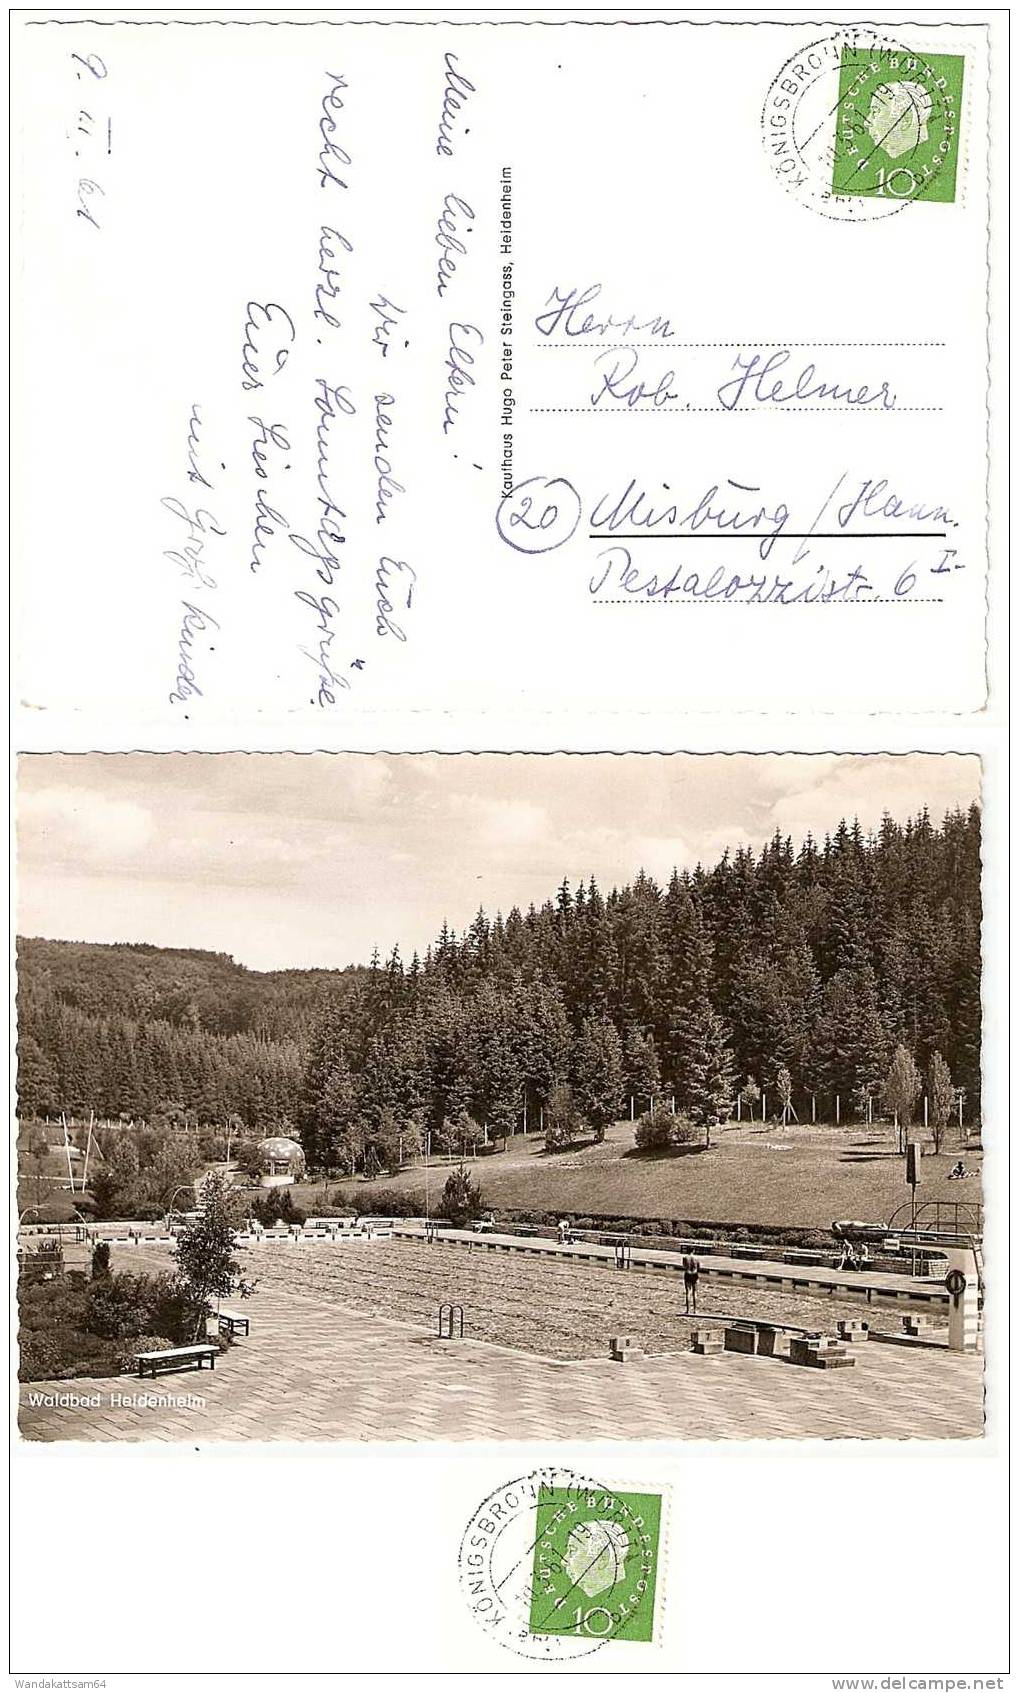 9. III. 61
Meine lieben Eltern!
Wir senden Euch
recht herzl. Sonntagsgrüße
Euer Lieschen
mit Großkinder.
Kaufhaus Hugo Peter Steingass, Heidenheim
KÖNIGSBRONN (WÜRTT)
10.3.61.-19
DEUTSCHE BUNDESPOST
10
Herrn
Rob. Helmer
20 Misburg / Hann.
Pestalozzistr. 6 I-
Waldbad Heidenheim
KÖNIGSBRONN (WÜRTT)
10.3.61.-19
DEUTSCHE BUNDESPOST
10
Wandakattsam64
delcampe.net